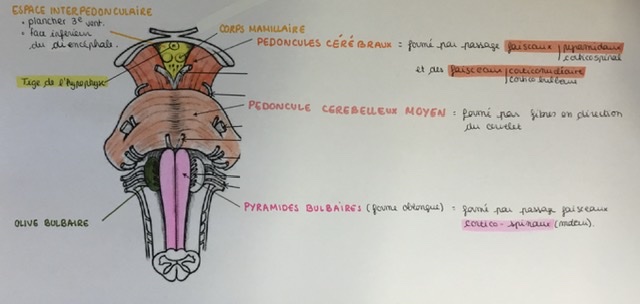 ESPACE INTERPEDONCULAIRE
• plancher 3e vent.
• face inférieur
du diencéphale.
Tige de l'hypophyse
OLIVE BULBAIRE
CORPS MAMILLAIRE
PEDONCULES CÉRÉBRAUX = formé par passage faisceaux pyramidaux
corticospinal
et des faisceaux corticonucléaire
cortico bulbaire
PEDONCULE CEREBELLEUX MOYEN = formé par fibres en direction
du cervelet
PYRAMIDES BULBAIRES (forme oblongue) = formé par passage faisceaux
cortico-spinaux (moteur).